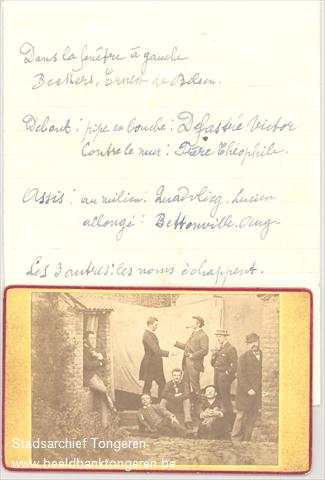 Dans la fenêtre à gauche
Beckers, Ernest de Bilsen.
Debout: pipe en bouche: Defastré Victor
Contre le mur: Théophile.
Assis: au milieu: Quadvlieg, Lucien
allongé: Bettonville, Aug.
Les 3 autres: les noms échappent.
Stadsarchief Tongeren
www.beeldbanktongeren.be